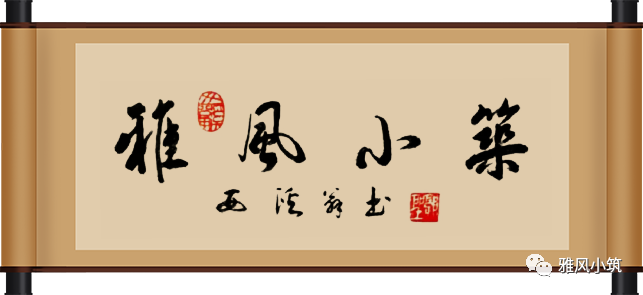 雅風小築
西溪翁书
雅风小筑